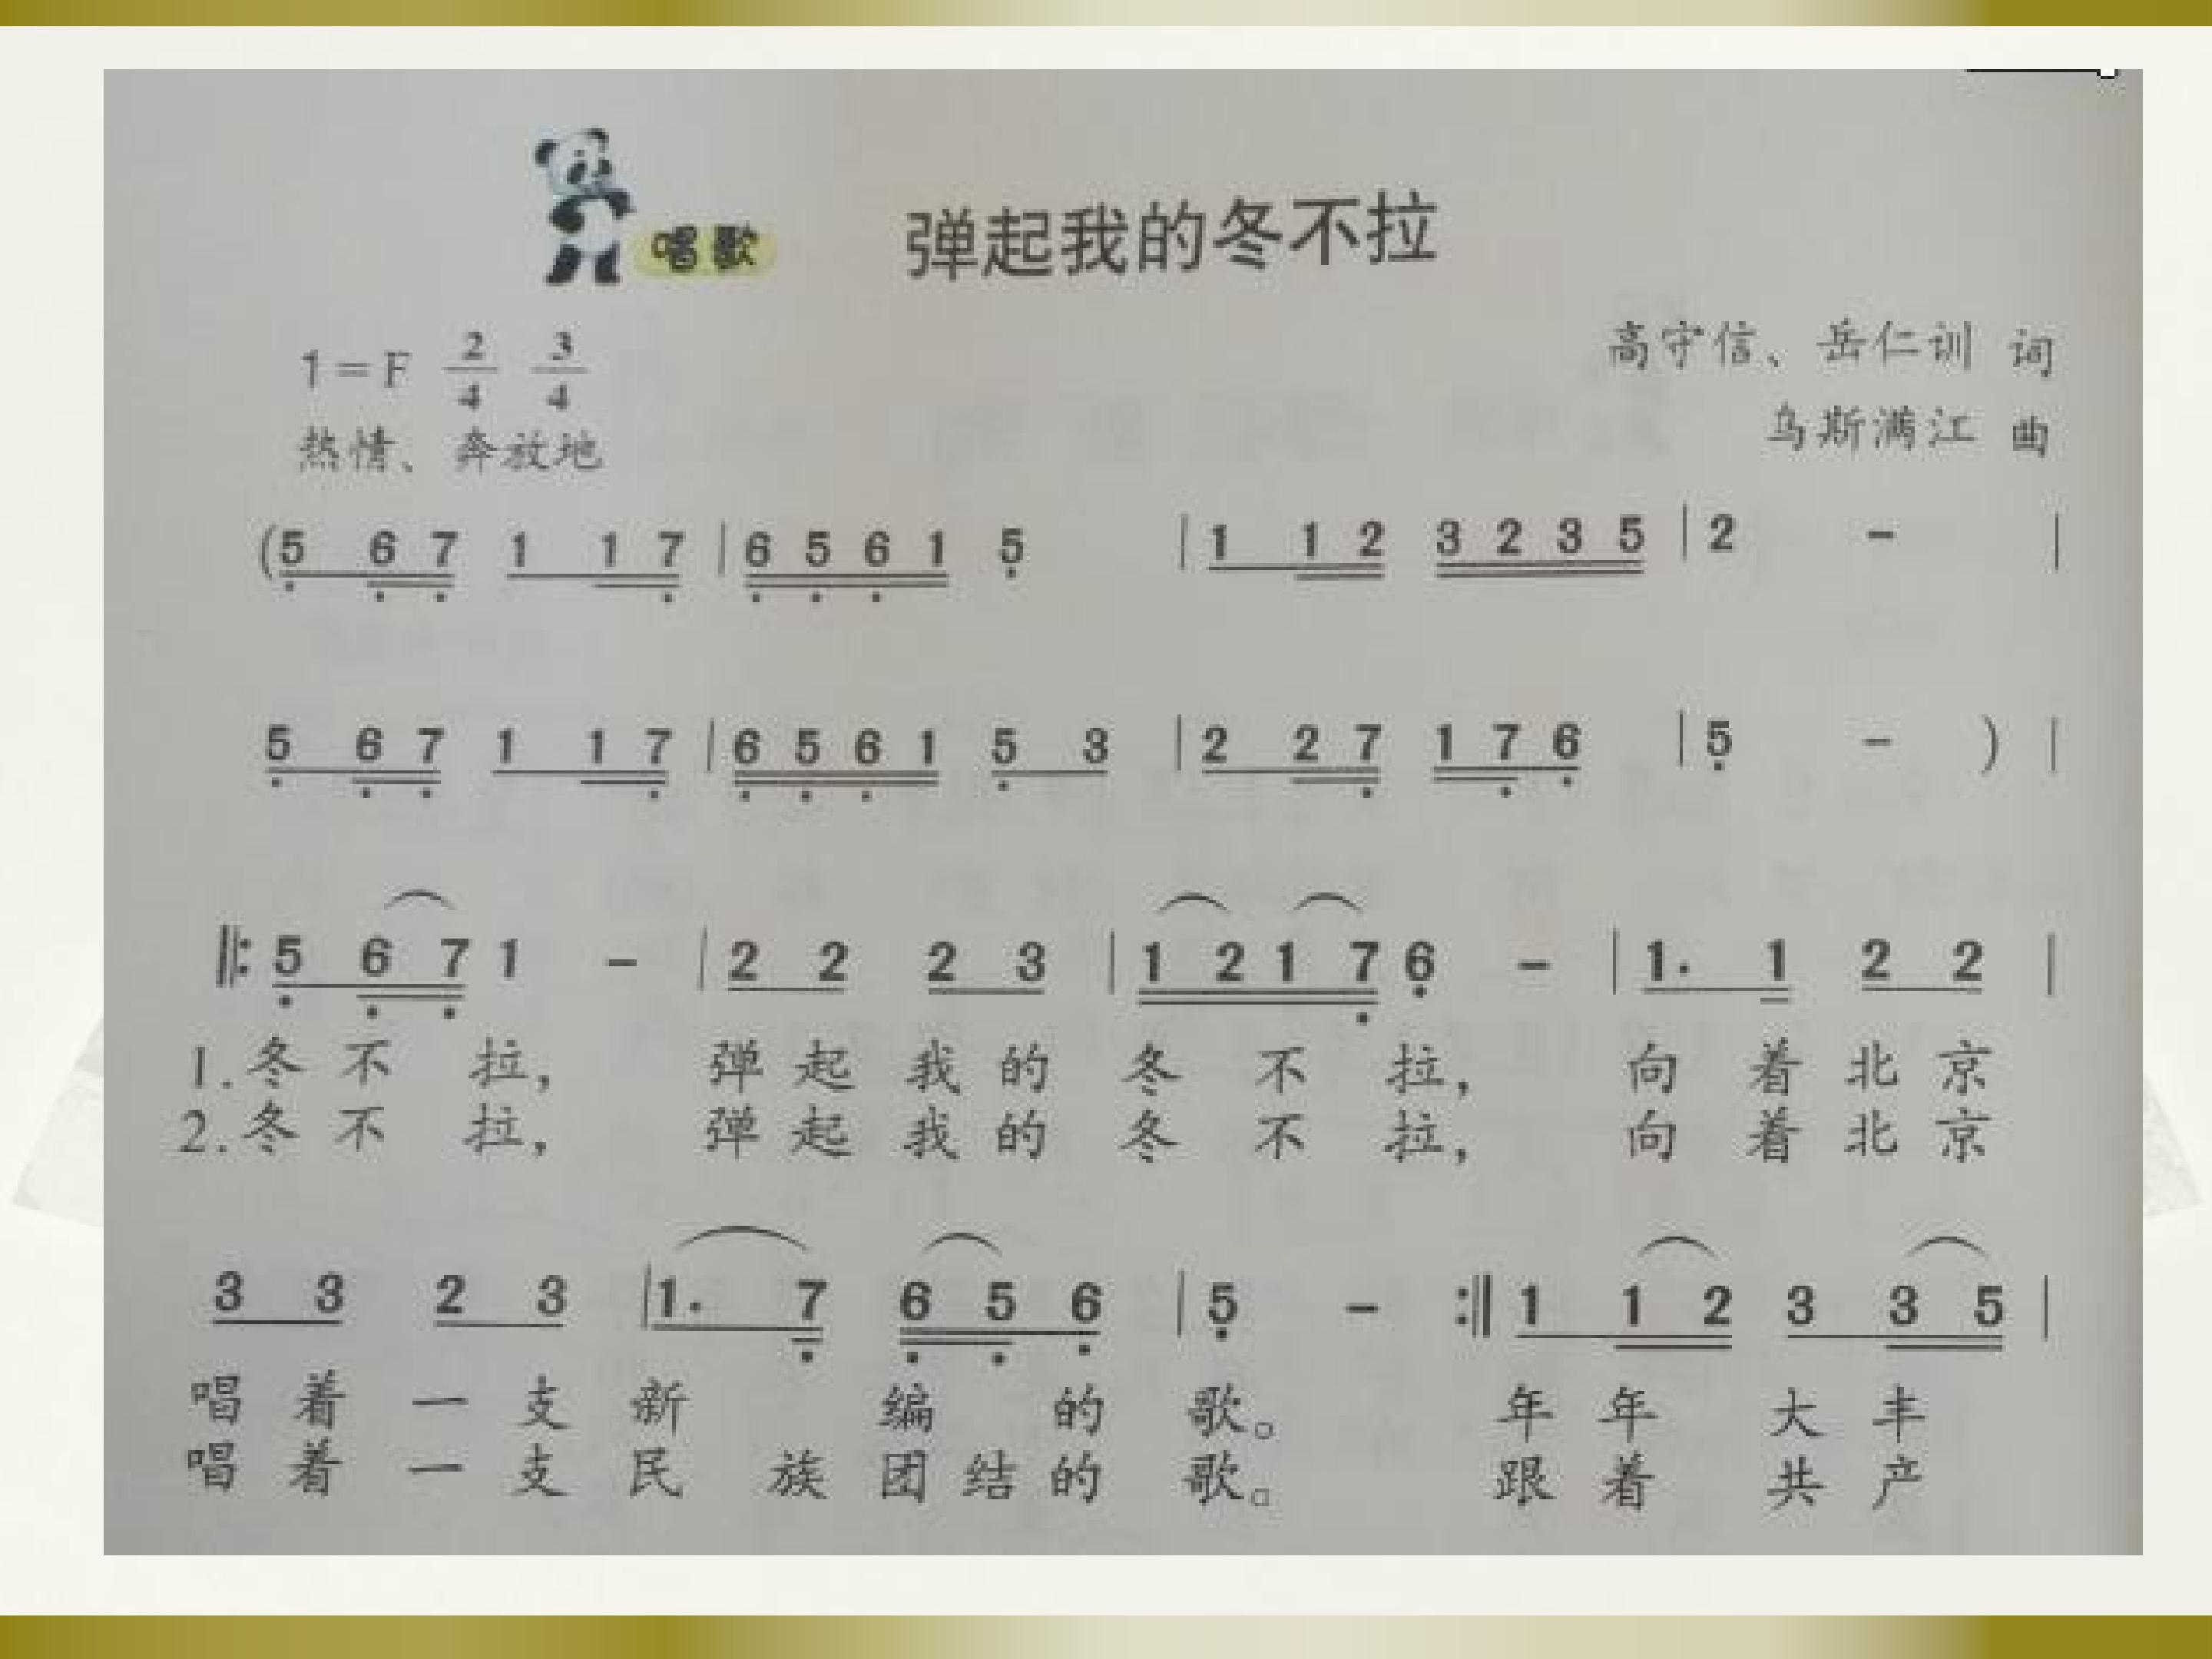 唱歌
弹起我的冬不拉
1=F 2/4 3/4
高守信、岳仁训 词
热情、奔放地
乌斯满江 曲
(5 6 7 1 1 7 | 6 5 6 1 5 | 1 1 2 3 2 3 5 | 2 - |
5 6 7 1 1 7 | 6 5 6 1 5 3 | 2 2 7 1 7 6 | 5 - ) |
‖: 5 6 7 1 - | 2 2 2 3 | 1 2 1 7 6 - | 1. 1 2 2 |
1.冬 不 拉, 弹 起 我 的 冬 不 拉, 向 着 北 京
2.冬 不 拉, 弹 起 我 的 冬 不 拉, 向 着 北 京
3 3 2 3 | 1. 7 6 5 6 | 5 - :‖ 1 1 2 3 3 5 |
唱 着 一 支 新 编 的 歌。 年 年 大 丰
唱 着 一 支 民 族 团 结 的 歌。 跟 着 共 产